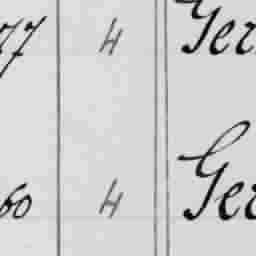 77 4 Ger
60 4 Ger